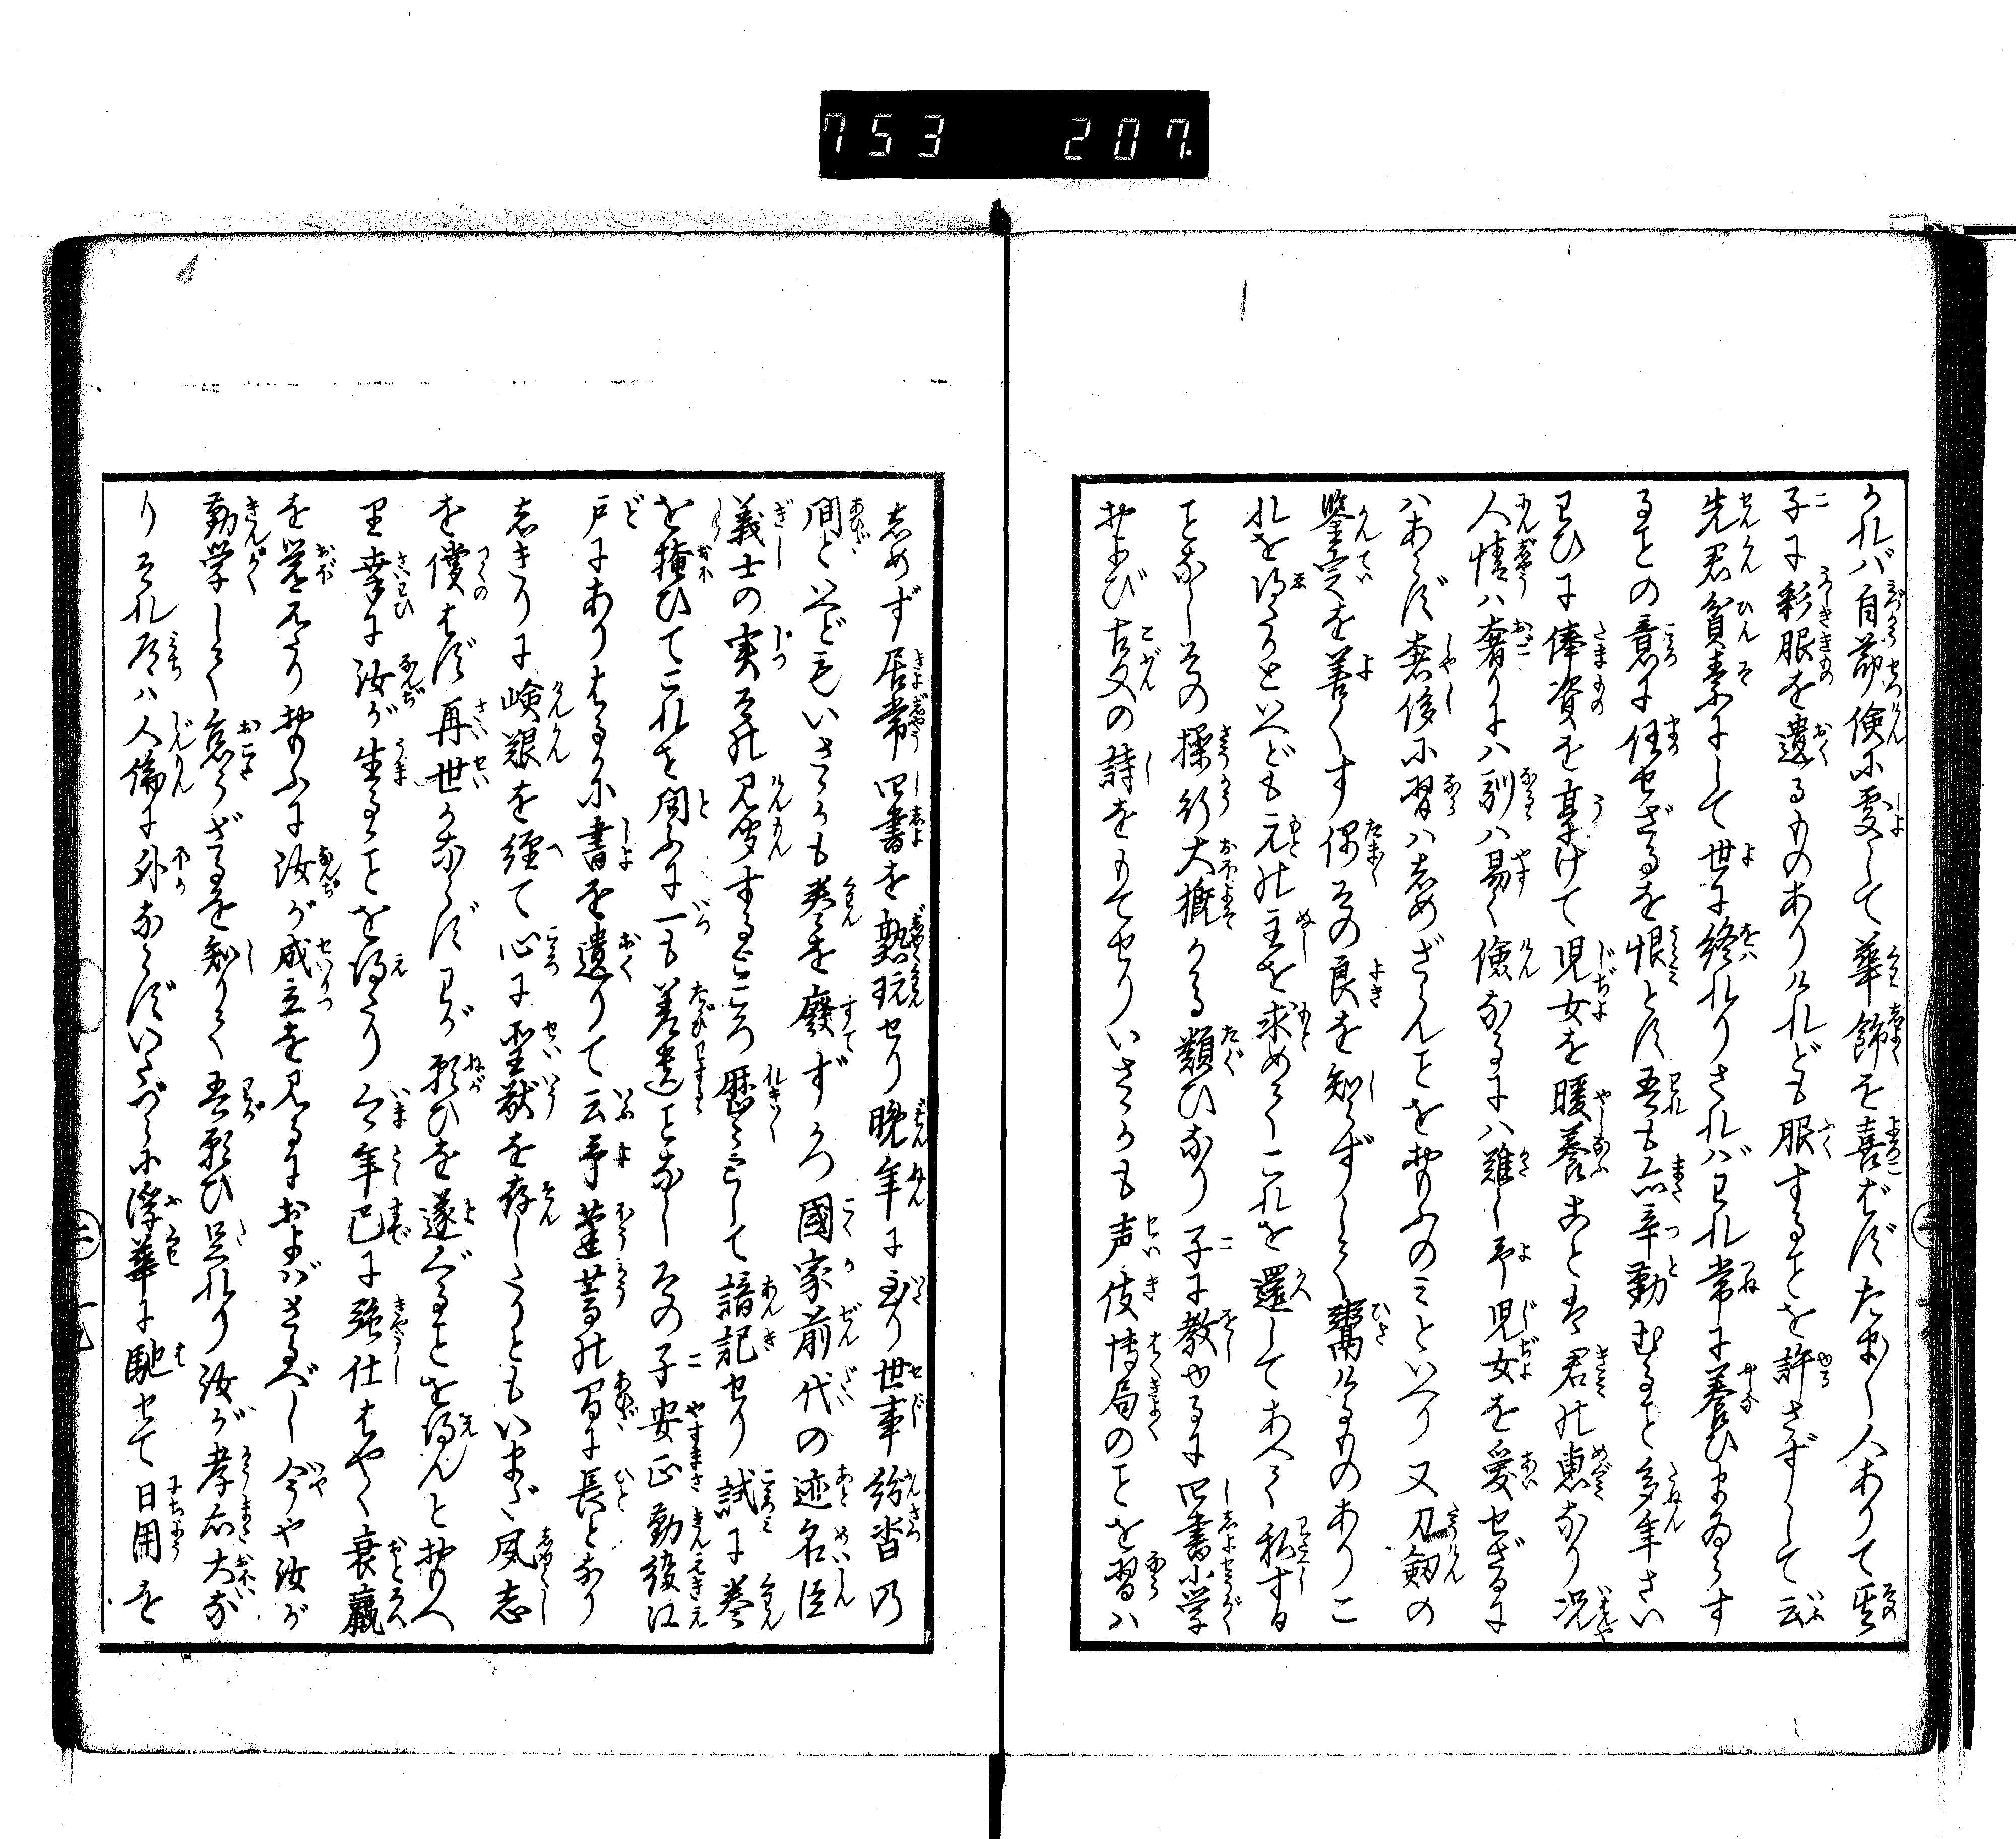 753 207.
くれバ自節倹に処して華飾を喜ばずたま〱人ありて其
子に彩服を遺るものありけれども服することを許さずして云
先君貧素にして世に終れりされバわれ常に養ひまゐらす
ることの意に任せざるを恨とす吾も亦辛勤むること多年さい
わひに俸資を享けて児女を暖養ふこと是君の恵なり況
人情ハ奢りにハ馴ハ易く倹なるにハ難し予児女を愛せざるに
ハあらず奢侈に習ハしめざらんことをおもふのミといへり又刀剱の
鑒定を善くす偶その良を知らずして鬻けるものありこ
れを得たりといへども元の主を求めてこれを還してあへて私する
ことなしその操行大概かる類ひなり子に教ゆるに四書小学
および古文の詩をもてせりいさゝかも声伎博局のことを習ハ
しめず居常四書を熟玩せり晩年に至り世事紛沓の
間といどもいさゝかも巻を廃ずかつ國家前代の迹名臣
義士の実その見聞するところ歴々として諳記せり試に巻
を掩ひてこれを問ふに一も差違ことなしその子安正勤役江
戸にありはるかに書を遺りて云予蓬蒿の間に長となり
しきりに嶮艱を経て心に聖猷を存したりともいまだ夙志
を償はず再世かならずわが願ひを遂べることを得んとおもへ
り幸に汝が生るゝことを得たり今年已に強仕はやく衰羸
を覚えたりおもふに汝が成立を見るにおよばざるべし今や汝が
勤学して怠らざるを知りて吾願ひ足れり汝が孝亦大な
りそれ道ハ人倫に外ならずいたづらに浮華に馳せて日用を